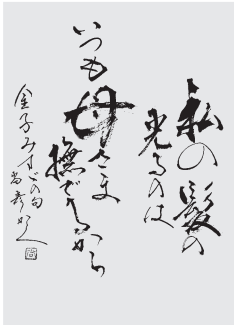 私の髪の
光るのは
いつも母さま
撫でるから
金子みすゞの句